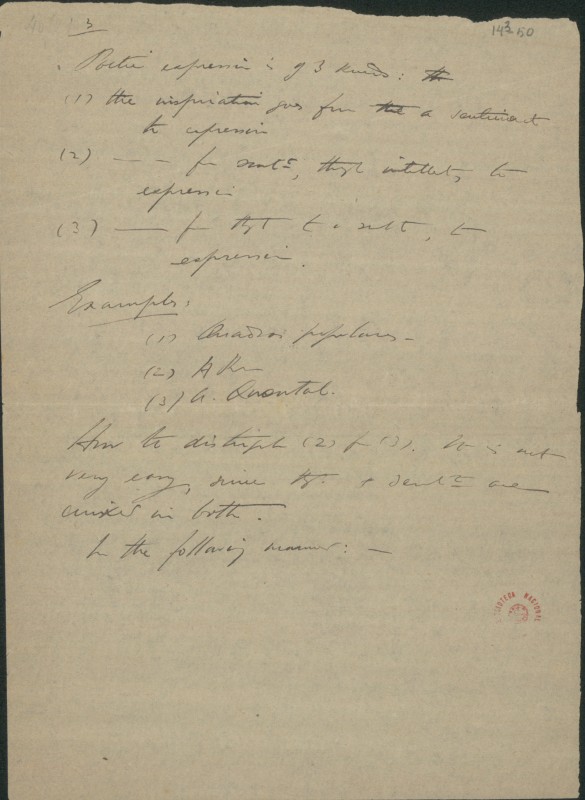 3
14³-50
Poetic expression is of 3 kinds:
(1) the inspiration goes from a sentiment
to expression
(2) —— from sentᵗ, through intellect, to
expression
(3) —— from thgt to a sentᵗ, to
expression.
Examples:
(1) Quadras populares –
(2)
(3) A. Quental.
How to distinguish (2) from (3). It is not
very easy, since thgt. + sentᵗ are
mixed in both.
In the following manner: —
BIBLIOTECA NACIONAL